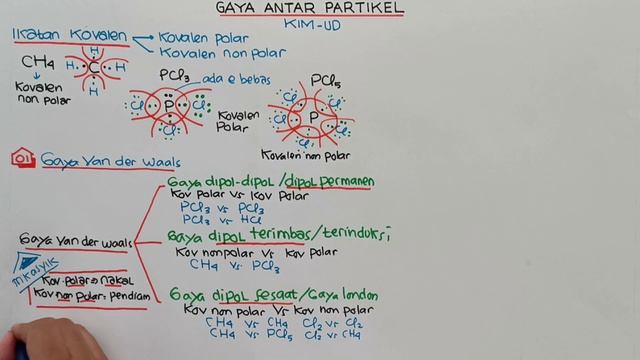 GAYA ANTAR PARTIKEL
KIM-UD
Ikatan Kovalen
Kovalen polar
Kovalen non polar
CH4
Kovalen
non polar
H
H C H
H
PCl3
ada e bebas
Cl P Cl
Cl
Kovalen
Polar
PCl5
Cl Cl
Cl P
Cl Cl
Kovalen non polar
01 Gaya Van der Waals
Gaya Van der Waals
Gaya dipol-dipol/dipol permanen
Kov polar vs Kov polar
PCl3 vs PCl3
PCl3 vs HCl
Gaya dipol terimbas/terinduksi
Kov nonpolar vs Kov polar
CH4 vs PCl3
Gaya dipol sesaat/Gaya london
Kov non polar Vs Kov non polar
CH4 vs CH4 Cl2 vs Cl2
CH4 vs PCl5 Cl2 vs CH4
MKASYIK
Kov polar = nakal
Kov non polar = pendiam